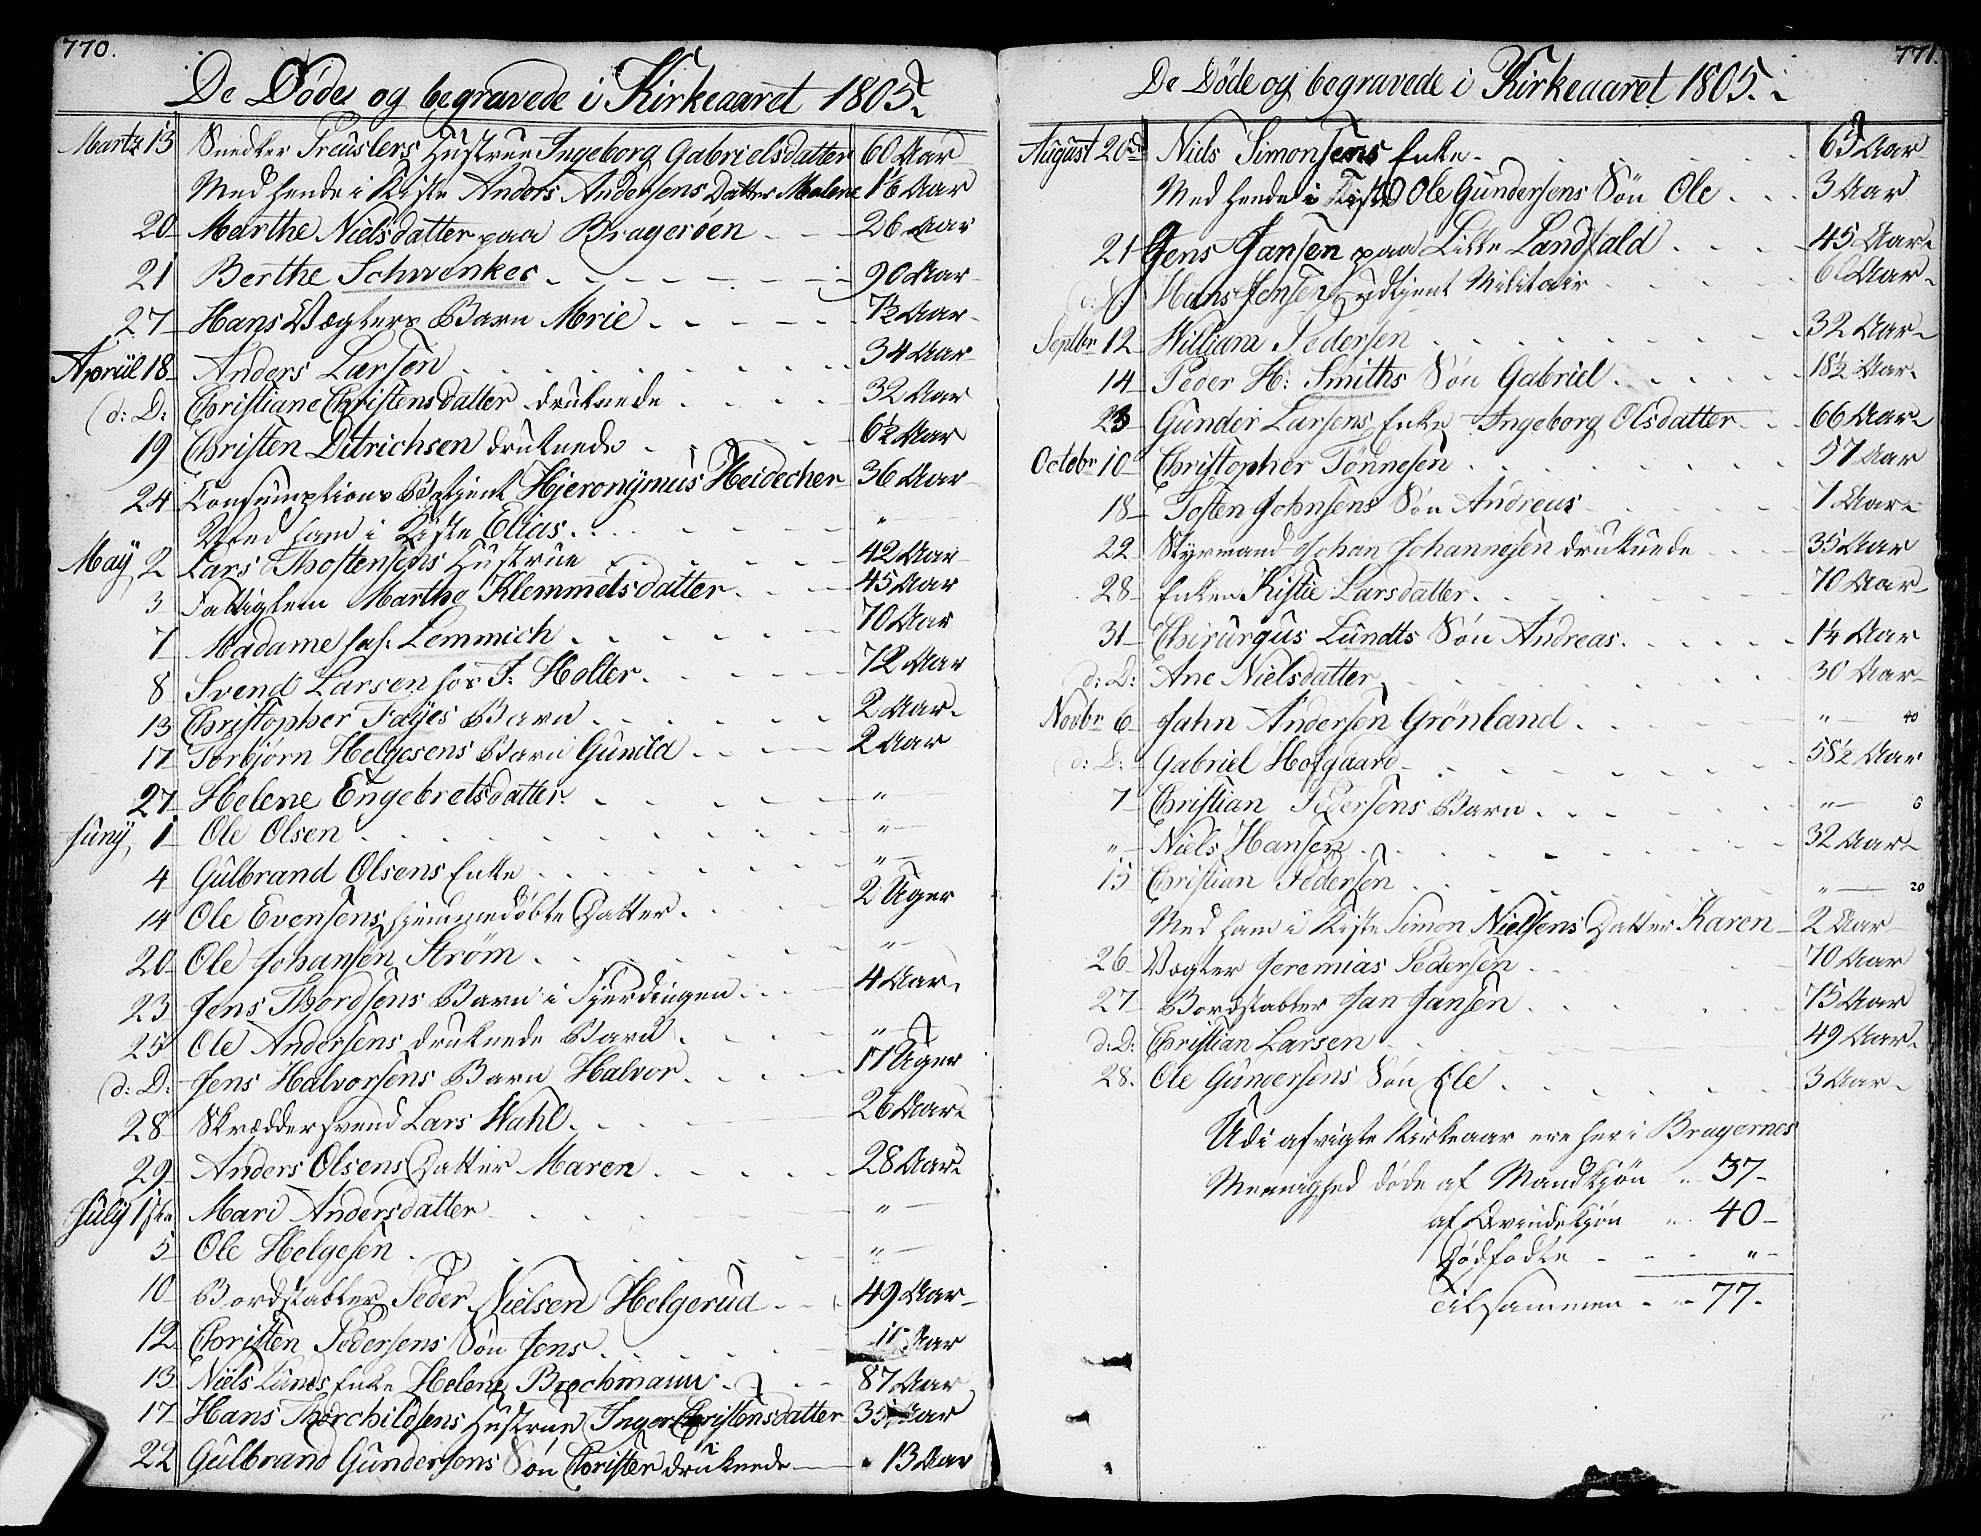 770.
De Døde og begravede i Kirkeaaret 1805.
Martz 13 Snedker Preuslers Hustrue Ingeborg Gabrielsdatter 60 Aar
Med hende i Kiste Anders Andersens Datter Malene 1½ Aar
20 Marthe Nielsdatter paa Bragerøen 26 Aar
21 Berthe Schwenkes 90 Aar
27 Hans Vægters Barn Mrie 7½ Aar
Apriil 18 Anders Larsen 34 Aar
(d: D: Christiane Christensdatter druknede 32 Aar
19 Christen Ditrichsen druknede 6½ Aar
24 Consumptions Betjent Hjeronÿmus Heidecher 36 Aar
Med ham i Kiste Elias "
Maÿ 2 Lars Thostensens Hustrue 42 Aar
3 Fattiglem Marthe Klemmetsdatter 45 Aar
7 Madame sal. Lemmich 70 Aar
8 Svend Larsen hos J. Holter 72 Aar
13 Christopher Fayes Barn 2 Aar
17 Torbjørn Helgesens Barn Gunild 2 Aar
27 Helene Engebretsdatter "
Junÿ 1 Ole Olsen "
4 Gulbrand Olsens Enke "
14 Ole Evensens hjemmedøbte Datter 2 Uger
20 Ole Johansen Strøm "
23 Jens Thordsens Barn i Fjerdingen 4 Aar
25 Ole Andersens druknede Barn "
(d: D: Jens Halvorsens Barn Halvor 17 Uger
28 Skræddersvend Lars Wahl 26 Aar
29 Anders Olsens Datter Maren 28 Aar
Julÿ 1ste Mari Andersdatter "
5 Ole Helgesen "
10 Bordstabler Peder Nielsen Helgerud 49 Aar
12 Christen Pedersens Søn Jens Aar
13 Niels Lunds Enke Helene Brochmann 87 Aar
17 Hans Thorchildsens Hustrue Inger Christensdatter 35 Aar
22 Gulbrand Gundersens Søn Christen druknede 13 Aar
771.
De Døde og begravede i Kirkeaaret 1805.
August 20de Niels Simonsens Enke 63 Aar
Med hende i Kiste Ole Gundersens Søn Ole 3 Aar
21 Jens Jansen paa Lille Landfald 45 Aar
(d: D: Hans Jensen udtjent Militair 60 Aar
Septbr 12 William Pedersen 32 Aar
14 Peder H: Smiths Søn Gabriel 18½ Aar
23 Gunder Larsens Enke Ingeborg Olsdatter 66 Aar
Octobr 10 Christopher Tønnesen 57 Aar
18 Tosten Johnsens Søn Andreas 7 Aar
22 Styrmand Johan Johannesen druknede 35 Aar
28 Enken Kistie Larsdatter 70 Aar
31 Chirurgus Lundts Søn Andreas 1¼ Aar
d: D: Ane Nielsdatter 30 Aar
Novbr 6 Jahn Andersen Grønland " 40
(d: D: Gabriel Hofgaard 58½ Aar
7 Christian Pedersens Barn " 6
" Niels Hansen 32 Aar
15 Christian Pedersen " 20
Med ham i Kiste Simon Nielsens Datter Karen 2 Aar
26 Vægter Jeremias Pedersen 70 Aar
27 Bordstabler Jan Jansen 75 Aar
d: D: Christian Larsen 49 Aar
28. Ole Gundersens Søn Ole 3 Aar
Udi afvigte Kirkeaar ere her i Bragernes
Menighed døde af Mandkjøn 37
af Qvindekjøn 40
Dødfødte "
Tilsammen 77